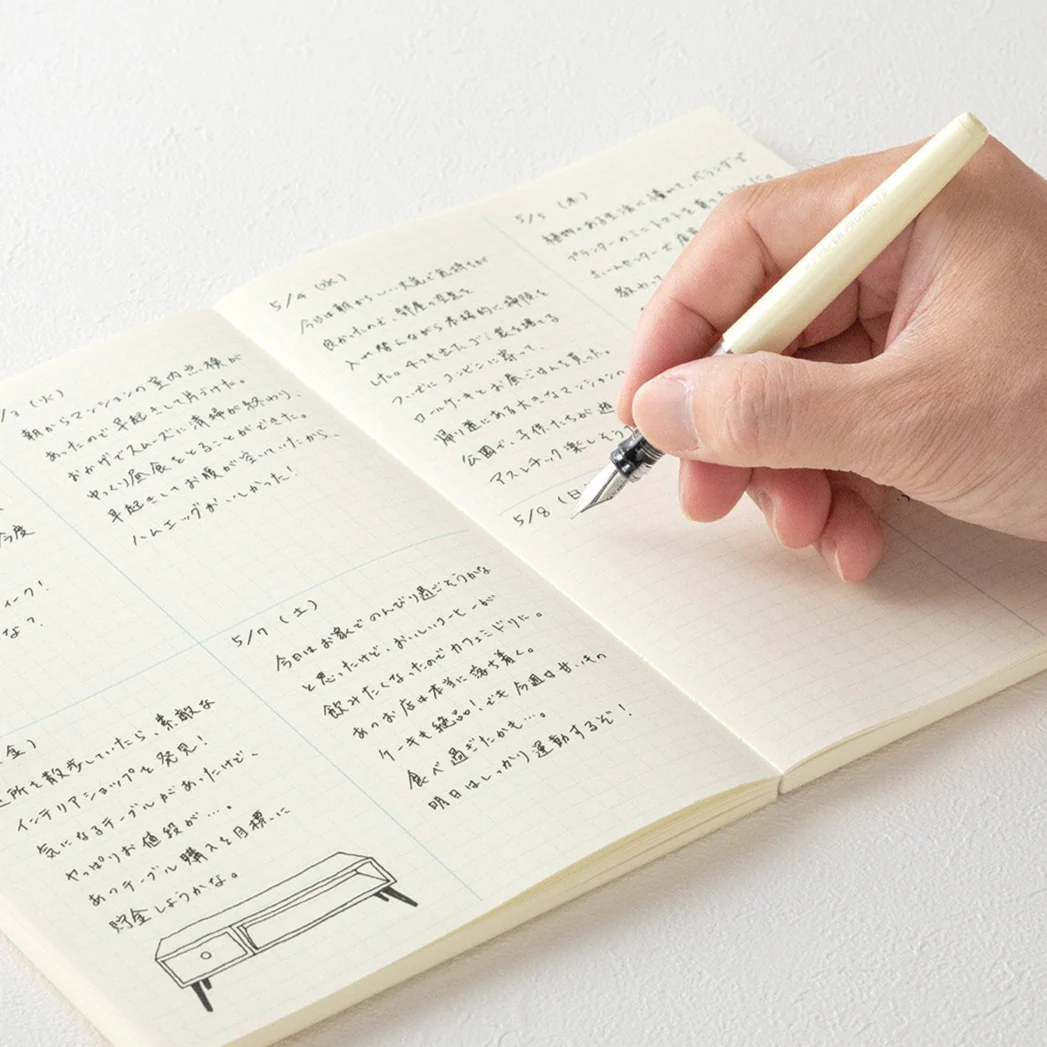 今度
ィーク!
な?
/3 (火)
朝からマンションの室内点検が
あったので早起きして片づけた。
おかげでスムーズに清掃が終わり、
ゆっくり昼食をとることができた。
早起きしてお腹が空いていたから、
ハムエッグがおいしかった!
金)
近所を散歩していたら、素敵な
インテリアショップを発見!
気になるテーブルがあったけど、
やっぱりお値段が…。
あのテーブル購入を目標に
貯金しようかな。
5/7 (土)
今日はお家でのんびり過ごそうかな
と思ったけど、おいしいコーヒーが
飲みたくなったのでカフェミドリに。
あのお店は本当に落ち着く。
ケーキも絶品!でも今週は甘いもの
食べ過ぎたかも…。
明日はしっかり運動するぞ!
5/4 (水)
今日は朝からいい天気で気持ちが
良かったので、部屋の空気を
入れ替えながら本格的に掃除を
した。4つも出たゴミ袋を捨てる
ついでにコンビニに寄って、
ロールケーキとお昼ごはんを買った。
帰り道にある大きなマンションの
公園で、子供たちが遊
アスレチック楽しそう
5/5 (木)
植物のある生活に憧れて、ベランダで
プランターのミニトマトを
ホームセンターで店
教わっ
5/8 (日